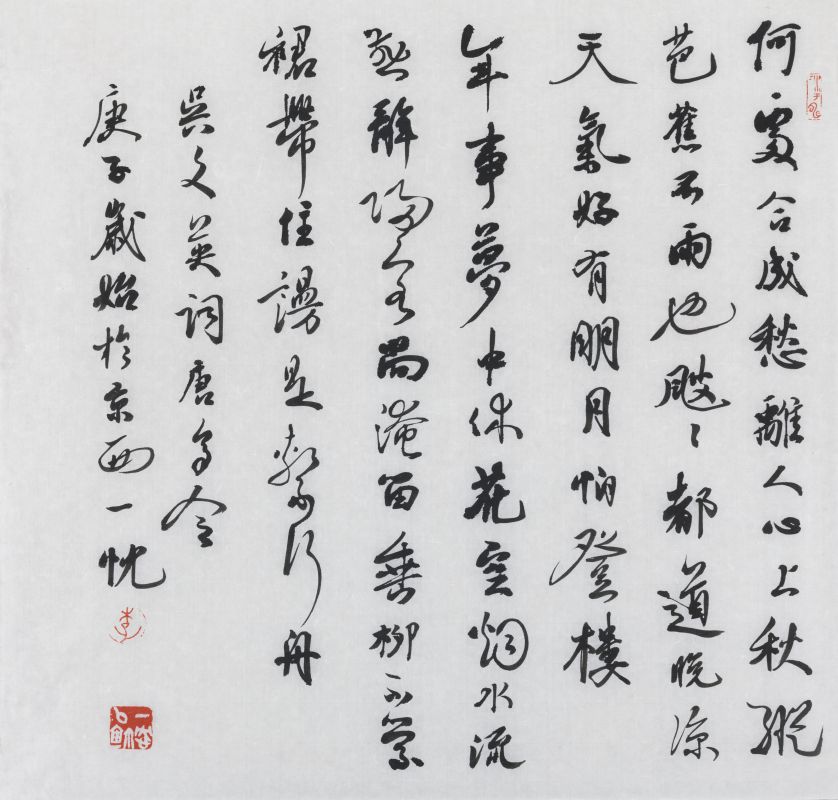 何處合成愁離人心上秋縱
芭蕉不雨也颼〻都道晚涼
天氣好有明月怕登樓
年事夢中休花空烟水流
燕辭歸客尚淹留垂柳不縈
裙帶住謾是繫行舟
吳文英詞唐多令
庚子歲始於京西一忱
李